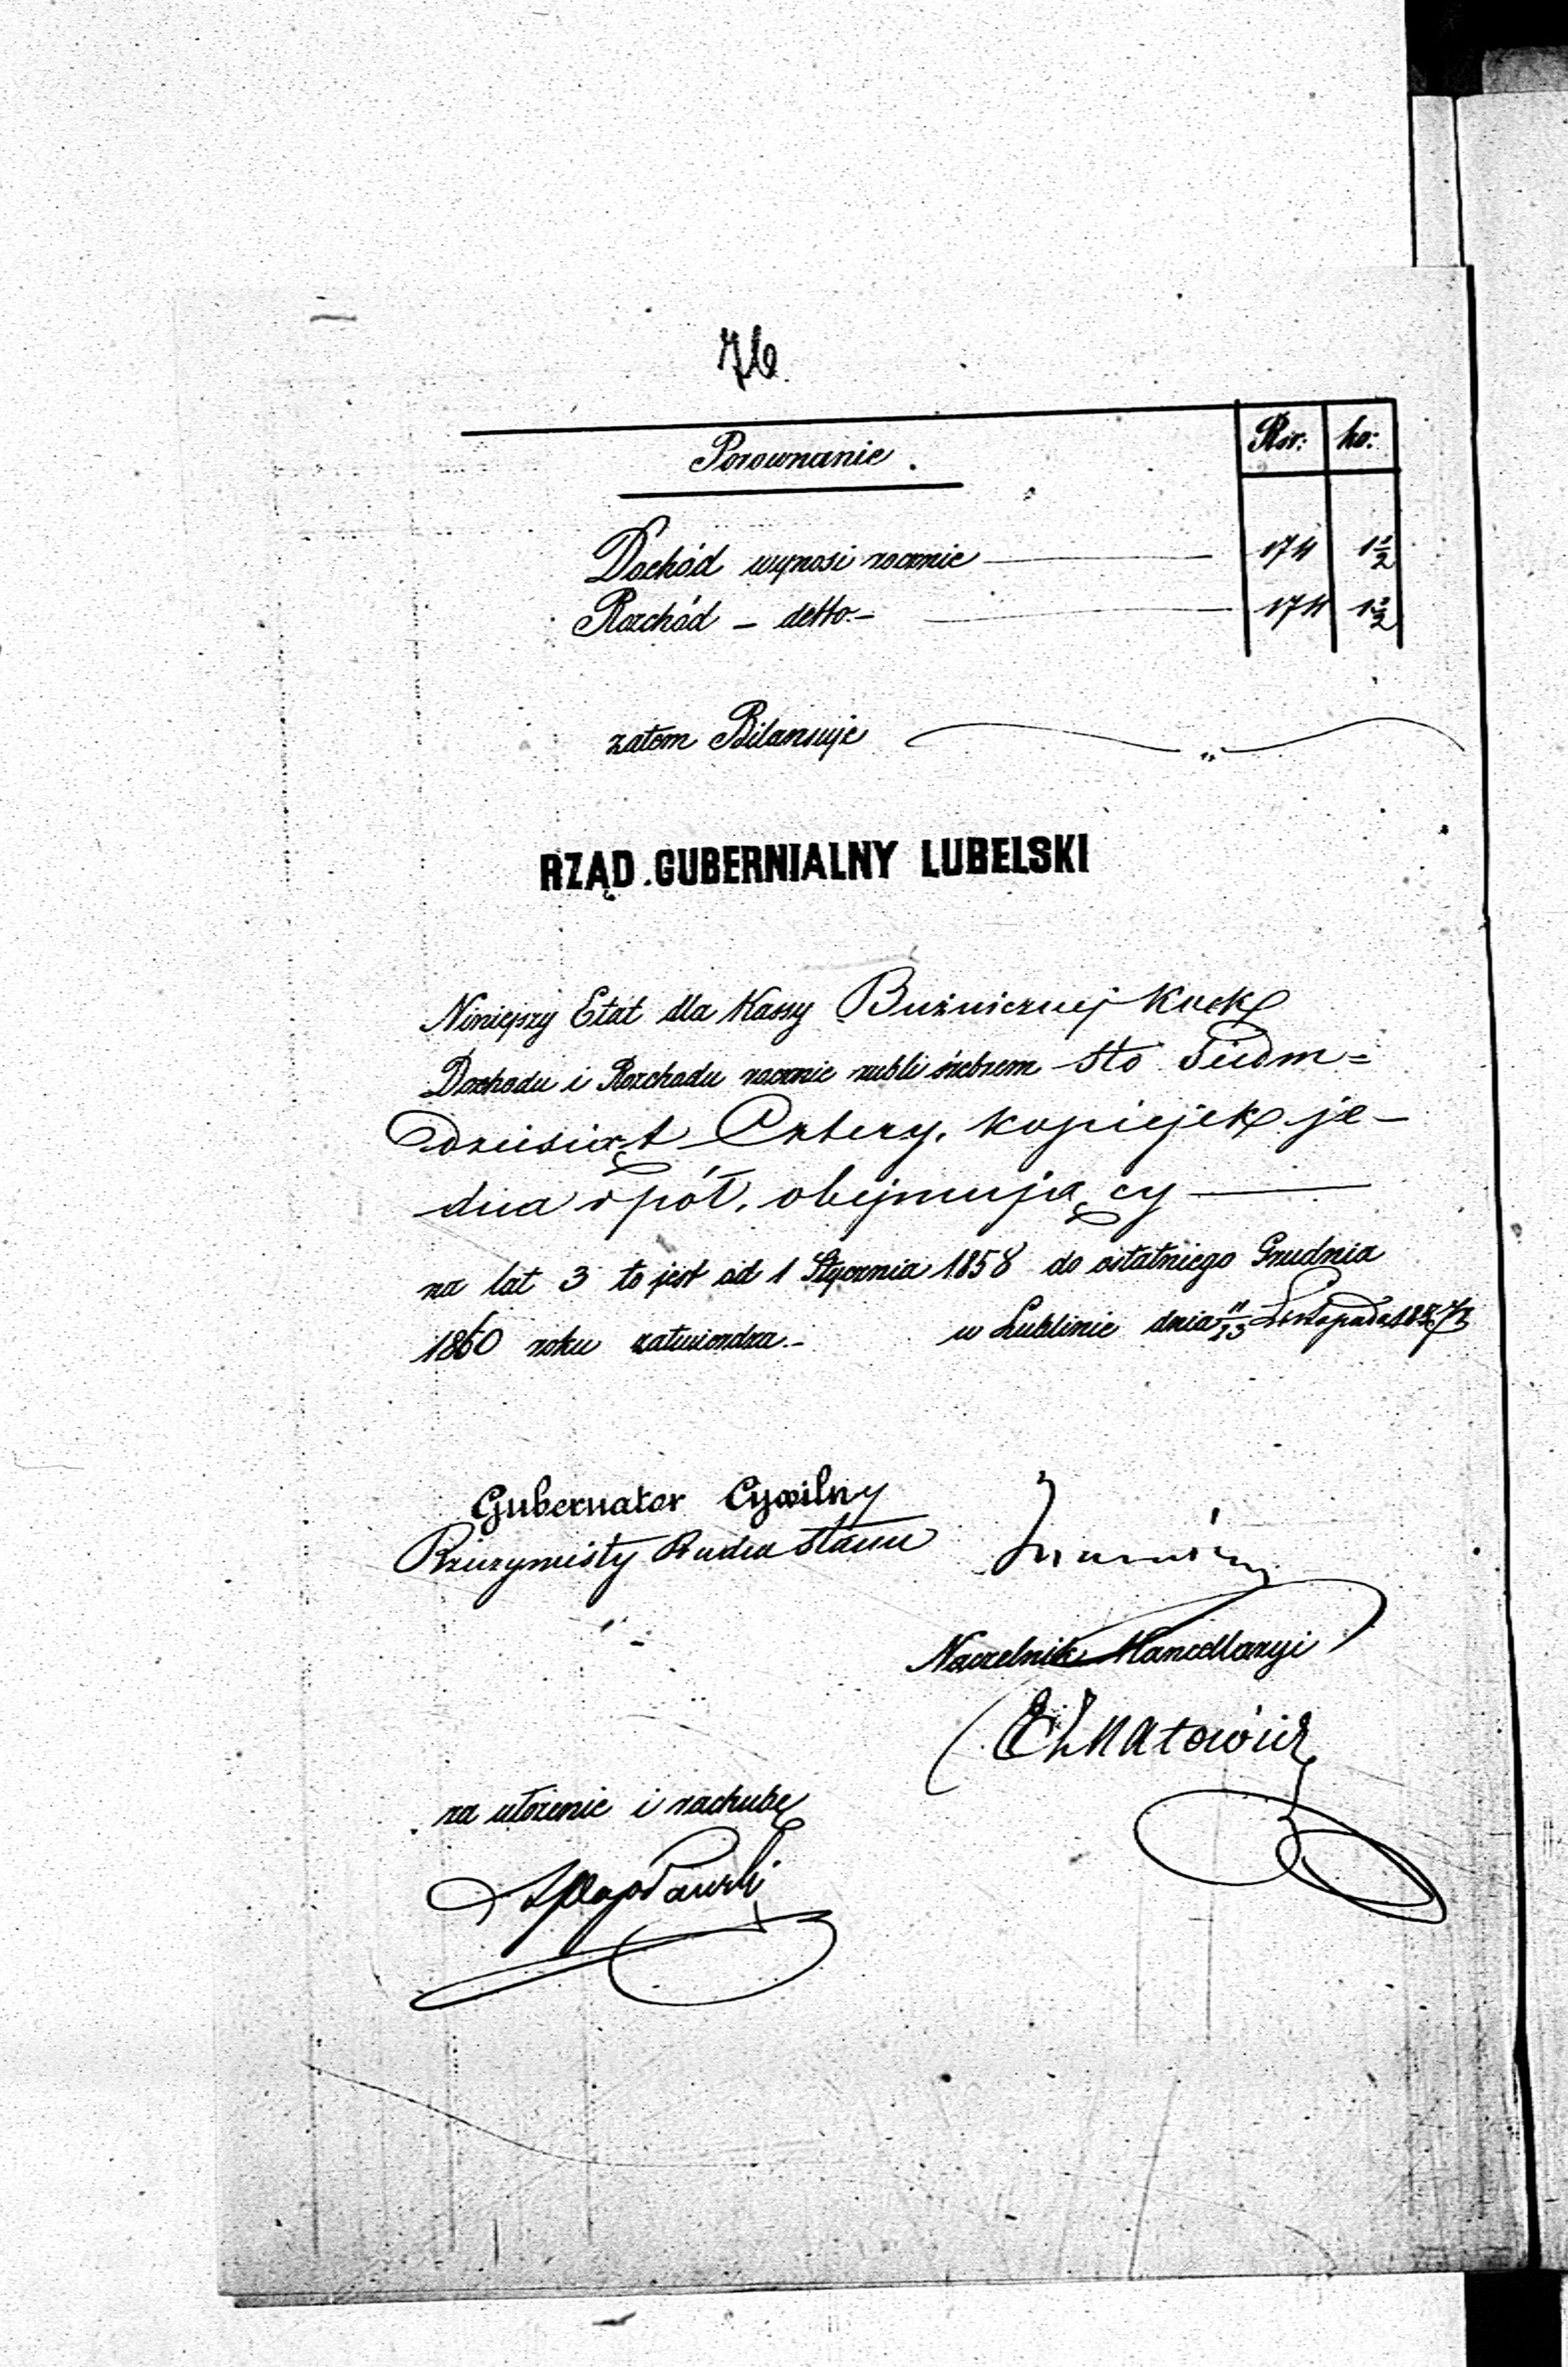 76
Porownanie.
Rsr: ko:
Dochód wynosi rocznie 174 1½
Rozchód - detto - 174 1½
zatem Bilansuje "
RZĄD GUBERNIALNY LUBELSKI
Niniejszy Etat dla Kassy Bużniczney Kock
Dochodu i Rozchodu rocznie rubli srebrem Sto Siedm=
dziesiąt Cztery, kopiejek je-
dna i pół, obejmujący
na lat 3 to jest od 1 Stycznia 1858 do ostatniego Grudnia
1860 roku zatwierdza.- w Lublinie dnia 11/23 Listopada 1857
Gubernator Cywilny
Rzeczywisty Radca Stanu
Naczelnik Kancellaryi
za ułożenie i rachubę